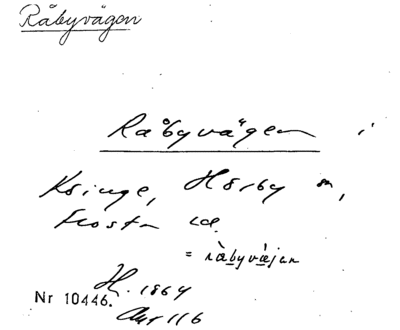 Råbyvägen
Råbyvägen i
Ksinge, Hörby sn,
Frosta hd.
= ràbyvæjen
H. 1869
Nr 10446.
116